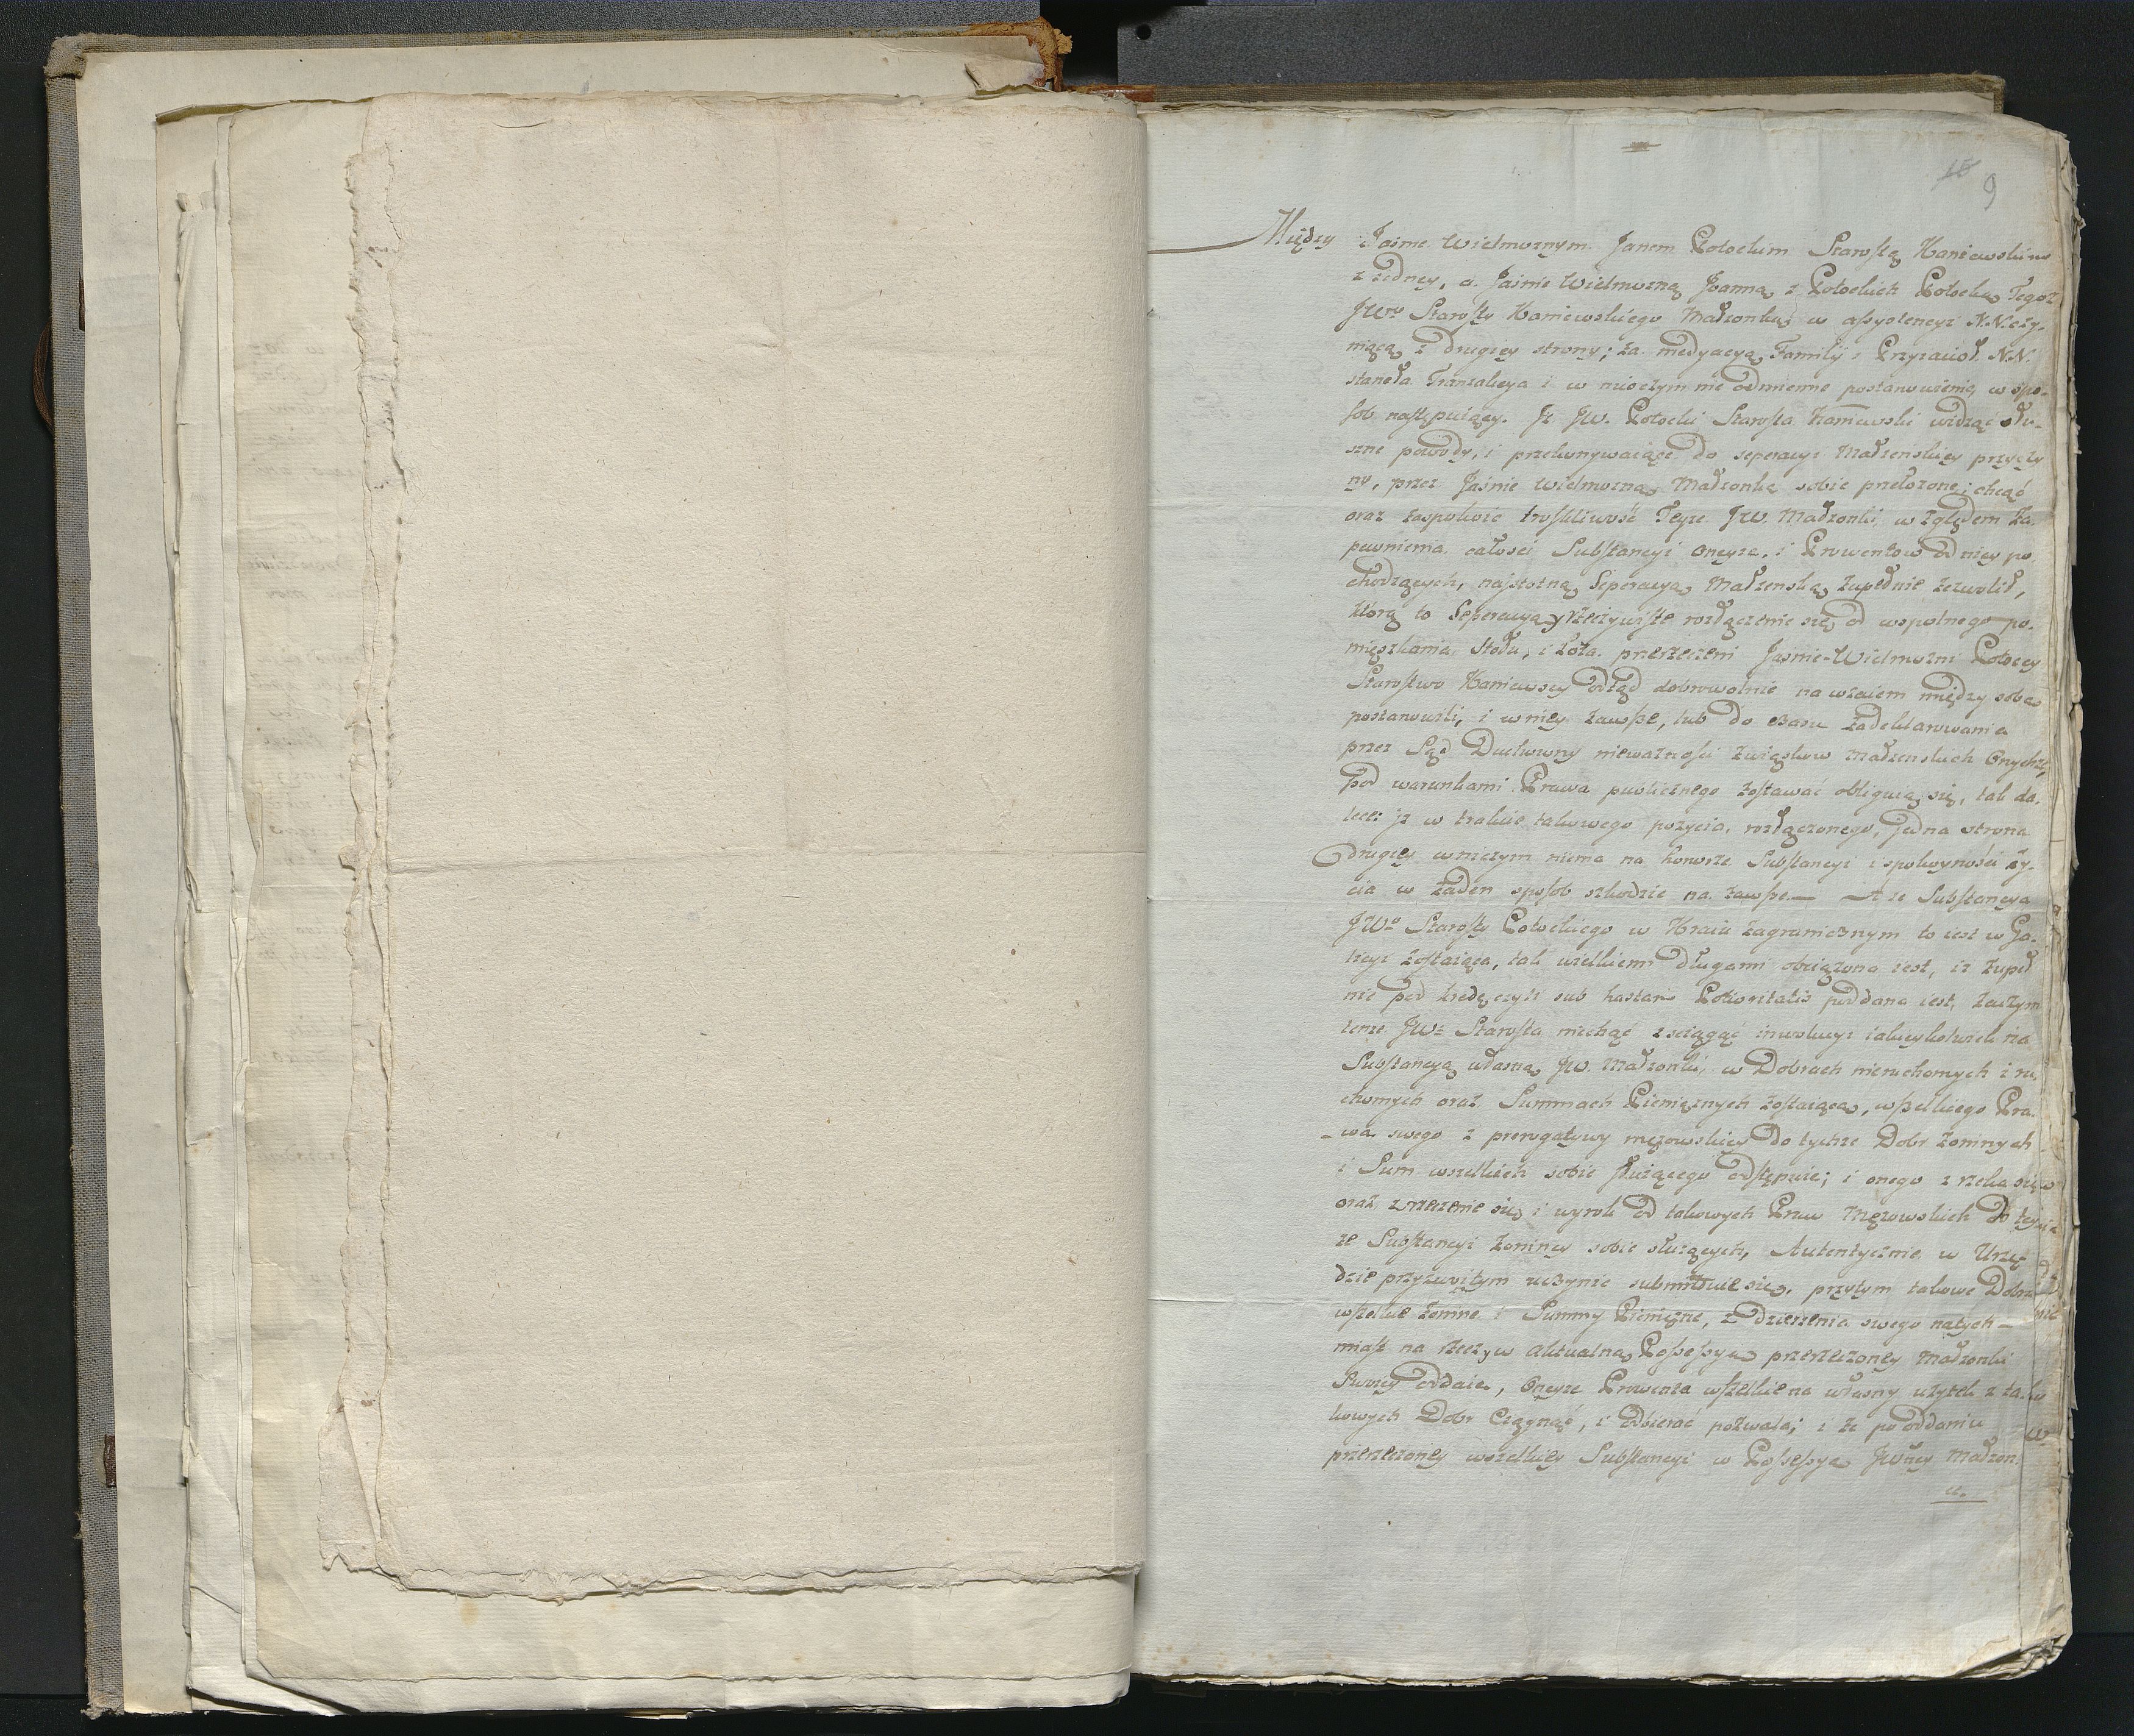 10 9
Między Jaśnie Wielmożnym Janem Potockim Starostą Kaniowskim
z iedney, a Jaśnie Wielmożną Joanną z Potockich Potocką Tegoż
JWo Starosty Kaniewskiego Małżonką w assystencyi N.N. czy-
niącą z drugiey strony; za medyacyą Familij i Przyiacioł N.N.
staneła Tranzakcya i w niczym nie odmienne postanowienie, w spo-
sob następuiący. Jż JW. Potocki Starosta Kaniewski widząc słu-
szne powody, i przekonywaiące do seperacyi Małżeńskiey przyczy
ny, przez Jaśnie Wielmożną Małżonkę sobie przełożone; chcąc
oraz zaspokoić troskliwość Teyże JW. Małżonki, w zględem za
pewnienia całości Substancyi oneyże, i Prowentow od niey po
chodzących, na istotną Seperacyą Małżenską zupełnie zezwolił,
którą to Seperacyą y rzeczywiste rozłączenie się od wspolnego po-
mięszkania, Stołu, i Łoża przerzeczeni Jaśnie-Wielmożni Potoccy
Starostwo Kaniewscy odtąd dobrowolnie na wzaiem między sobą
postanowili, i w niey zawsze, lub do czasu zadeklarowania
przez Sąd Duchowny nieważności związkow Małżenskich Onychże,
pod warunkami Prawa publicznego zostawać obliguią się, tak da-
lece: jż w trakcie takowego pożycia rozłączonego, jedna strona
drugiey w niczym nie ma na honorze Substancyi i spokoyności ży-
cia w żaden sposob szkodzić na zawsze — A że Substancya
JWo Starosty Potockiego w Kraiu zagranicznym to iest w Ga-
licyi zostaiąca, tak wielkiemi długami obciążona iest, iż zupeł
nie pod kredę czyli sub hastam Potioritatis poddana iest, zaczym
tenże JW: Starosta niechąc zsciągąć inwolucyi iakieykolwiek na
Substancyą własną JW. Małżonki, w Dobrach nieruchomych i ru-
chomych oraz Summach Pieniężnych zostaiącą, wszelkiego Pra-
wa swego z prerogatywy mężowskiey do tychże Dobr żoninych
i Sum wszelkich sobie służącego odstępuie; i onego zrzeka się
oraz zrzeczenie się i wyrok od takowych Praw mężowskich do tey
że Substancyi żoniney sobie służących, Autentycznie w Urzę-
dzie przyzwoitym uczynić submittuie się, przytym takowe Dobra
wszelkie żonine i Summy Pieniężne, z dzierżenia swego natych-
miast na rzeczyw aktualną Possessyą przerzeczoney Małżonki
Swoiey oddaie, Oneyże Prowenta wszelkie na własny użytek z ta-
kowych Dobr Ciągnąć, i odbierać pozwala; i że po oddaniu
przerzeczoney wszelkiey Substancyi w Possessyą JWney Małżon.